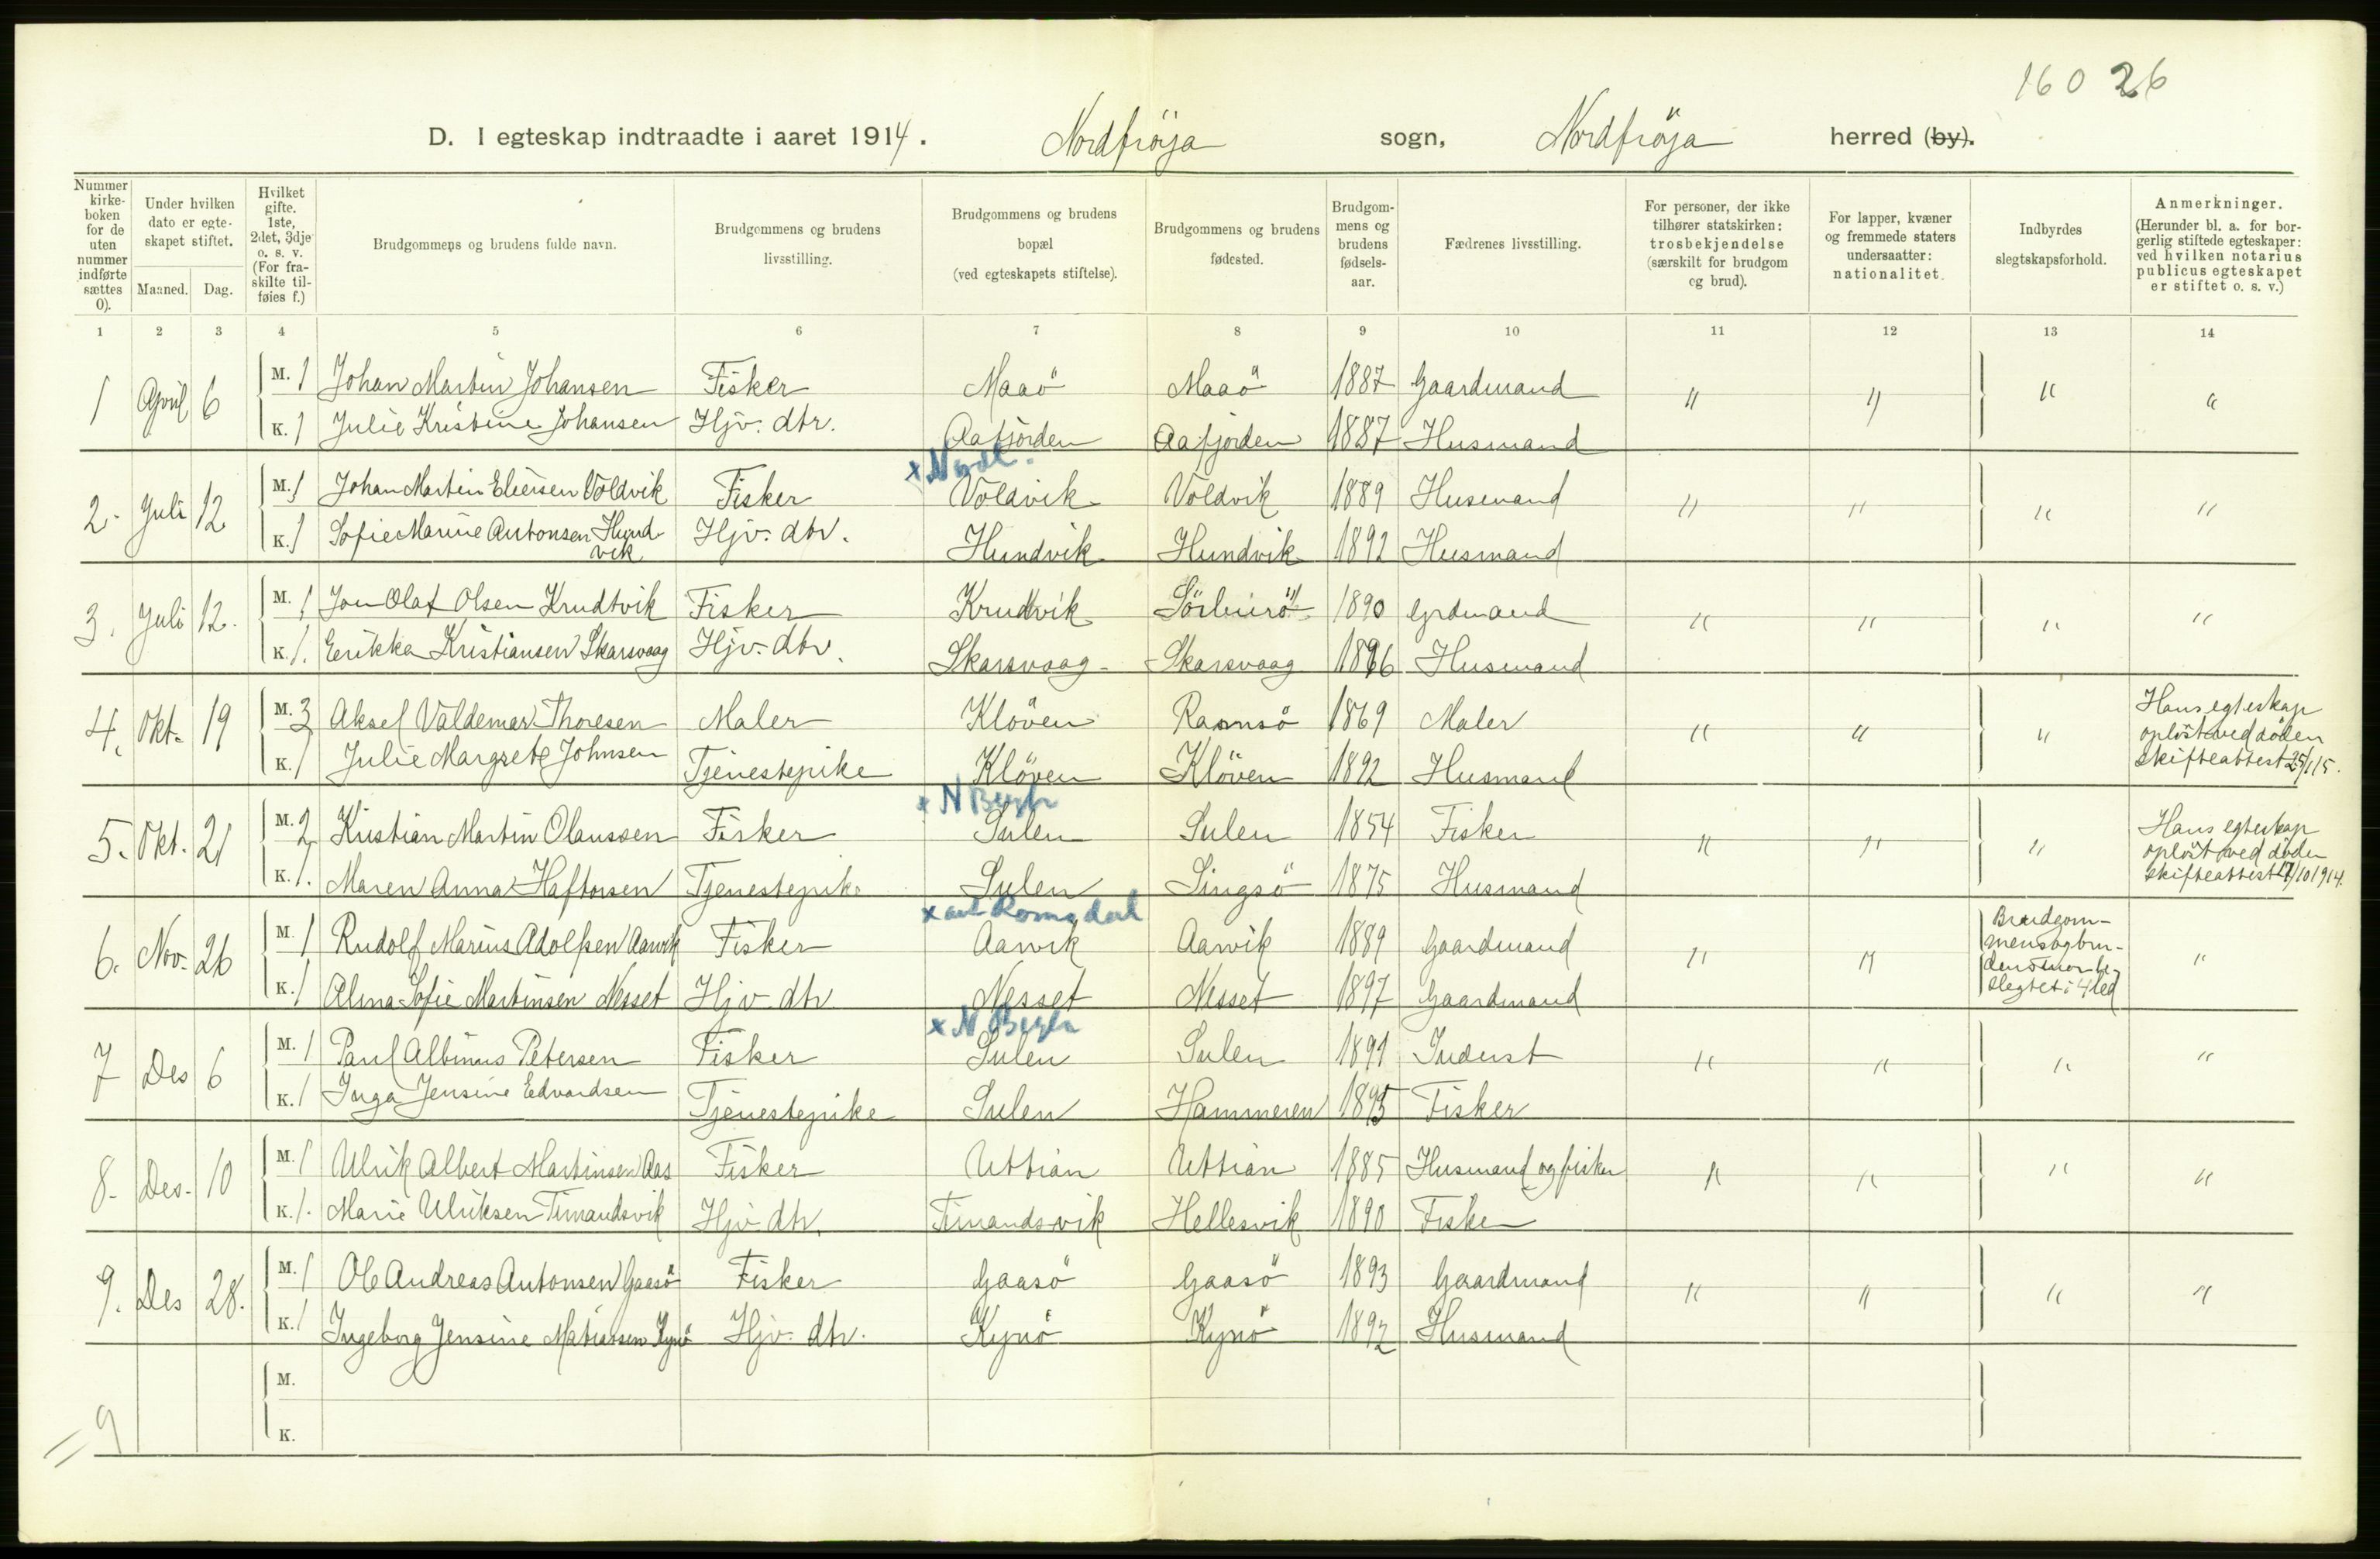 160 26
D. I egteskap indtraadte i aaret 1914. Nordfröya sogn, Nordfröya herred (by).
Nummer kirkeboken for de uten nummer indførte sættes 0).
Under hvilken dato er egteskapet stiftet.
Maaned. Dag.
Hvilket gifte. 1ste, 2det, 3dje o. s. v. (For fraskilte tilføies f.)
Brudgommens og brudens fulde navn.
Brudgommens og brudens livsstilling.
Brudgommens og brudens bopæl (ved egteskapets stiftelse).
Brudgommens og brudens fødested.
Brudgommens og brudens fødselsaar.
Fædrenes livsstilling.
For personer, der ikke tilhører statskirken: trosbekjendelse (særskilt for brudgom og brud).
For lapper, kvæner og fremmede staters undersaatter: nationalitet.
Indbyrdes slegtskapsforhold.
Anmerkninger. (Herunder bl. a. for borgerlig stiftede egteskaper: ved hvilken notarius publicus egteskapet er stiftet o. s. v.)
1 2 3 4 5 6 7 8 9 10 11 12 13 14
1 April 6 M. 1 Johan Martin Johansen Fisker Maaö Maaö 1887 Gaardmand " " " "
K. 1 Julie Kristine Johansen Hjv. dtr. Aafjorden Aafjorden 1887 Husmand
2. Juli 12 M. 1 Johan Martin Eliersen Voldvik Fisker Voldvik Voldvik 1889 Husmand " " " "
K. 1 Sofie Marine Antonsen Hundvik Hjv. dtr. Hundvik Hundvik 1892 Husmand
3. Juli 12. M. 1 Jon Olaf Olsen Krudtvik Fisker Krudtvik 1890 Grdmand " " " "
K. 1. Erikka Kristiansen Skarsvaag Hjv. dtr. Skarsvaag Skarsvaag 1896 Husmand
4. Okt. 19 M. 3 Aksel Valdemar Thoresen Maler Klöven Ramsö 1869 Maler " " " Hans egteskap opløst ved döden skifteattest 25/1 15.
K. 1 Julie Margrete Johnsen Tjenestepike Klöven Klöven 1892 Husmand
x N Bergh
5. Okt. 21 M. 2 Kristian Martin Olaussen Fisker Sulen Sulen 1854 Fisker " " " Hans egteskap oplöst ved döden skifteattest 17/10 1914.
K. 1. Maren Anna Haftorsen Tjenestepike Sulen Singsö 1875 Husmand
x ant Romsdal
6. Nov. 26 M. 1 Rudolf Marius Adolfsen Aanvik Fisker Aanvik Aanvik 1889 Gaardmand " " Brudgommens og brudens mor beslegtet i 4 led "
K. 1 Alma Sofie Martinsen Nesset Hjv. dtr Nesset Nesset 1897 Gaardmand
x N Bergh
7 Des 6 M. 1 Paul Albinus Petersen Fisker Sulen Sulen 1891 Inderst " " " "
K. 1 Inga Jensine Edvardsen Tjenestepike Sulen Hammeren 1895 Fisker
8. Des. 10 M. 1 Ulrik Albert Martinsen Aas Fisker Uttian Uttian 1885 Husmand og fisker " " " "
K. 1. Marie Ulriksen Timandsvik Hjv. dtr. Timandsvik Hellesvik 1890 Fisker
9. Des 28. M. 1 Ole Andreas Antonsen Gaasö Fisker Gaasö Gaasö 1893 Gaardmand " " " "
K. 1 Ingeborg Jensine Matiassen Kynö Hjv. dtr. Kynö Kynö 1892 Husmand
M.
K.
= 9